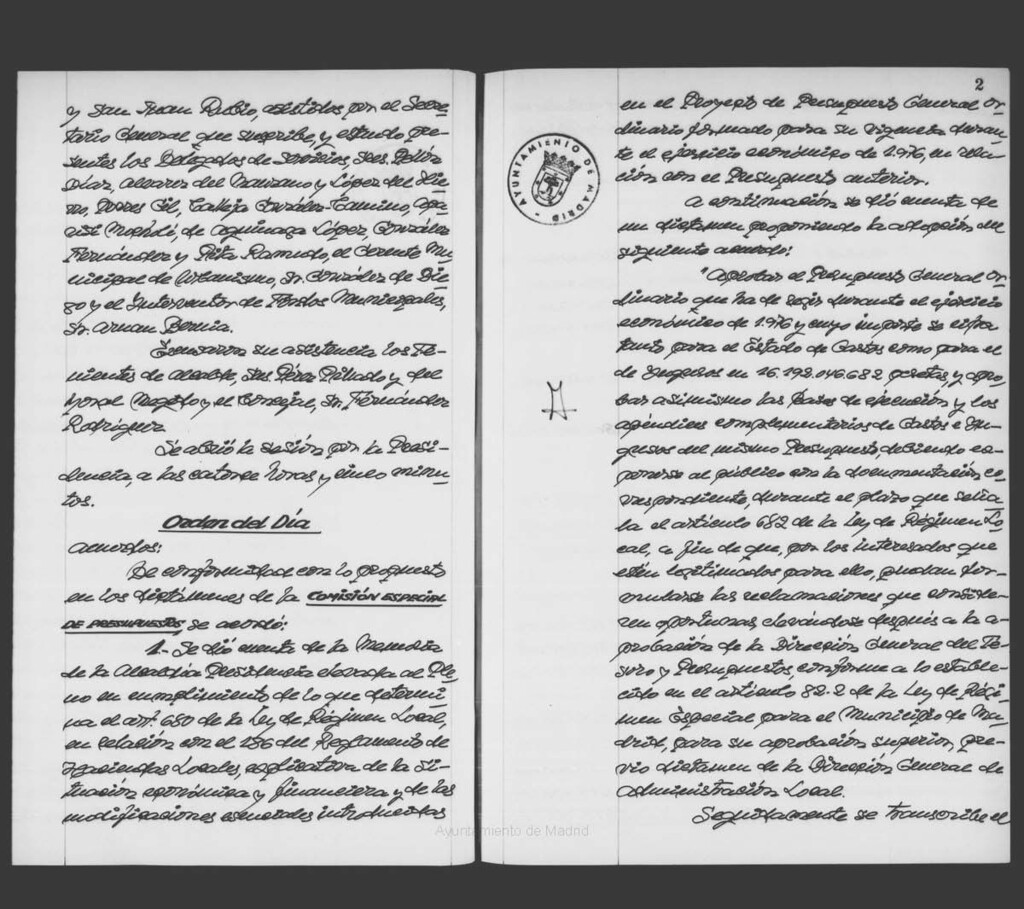 y San Juan Rubio, asistidos por el Secre-
tario General que suscribe, y estando pre-
sentes los Delegados de Servicios Sres. Belón
Díaz, Alvarez del Manzano y López del Hie-
rro, Torres Gil, Calleja González-Camino, Apa-
, de Aguinaga López, González
Fernández y Pita Ramudo, el Gerente Mu-
nicipal de Urbanismo, Sr. González de Die-
go y el Interventor de Fondos Municipales,
Sr. Arnau Bernia.
Excusaron su asistencia los Te-
nientes de Alcalde, Sres. Pérez Pillado y del
Moral y el Concejal, Sr. Fernández
Rodríguez.
Se abrió la sesión por la Presi-
dencia, a las catorce horas y cinco minu-
tos.
Orden del Día
Acuerdos:
De conformidad con lo propuesto
en los dictámenes de la COMISIÓN ESPECIAL
DE PRESUPUESTOS, se acordó:
1.- Se dió cuenta de la Memoria
de la Alcaldía Presidencia elevada al Ple-
no en cumplimiento de lo que determi-
na el art. 680 de la Ley de Régimen Local,
en relación con el 156 del Reglamento de
Haciendas Locales, explicativa de la si-
tuación económica y financiera y de las
modificaciones esenciales introducidas
2
en el Proyecto de Presupuesto General Or-
dinario formado para su vigencia duran-
te el ejercicio económico de 1.976, en rela-
ción con el Presupuesto anterior.
A continuación se dió cuenta de
un dictamen proponiendo la adopción del
siguiente acuerdo:
"Aprobar el Presupuesto General Or-
dinario que ha de regir durante el ejercicio
económico de 1.976 y cuyo importe se cifra
tanto para el Estado de Gastos como para el
de Ingresos en 16.192.046.682 pesetas, y apro-
bar asimismo las Bases de ejecución y los
apéndices complementarios de Gastos e In-
gresos del mismo Presupuesto, debiendo ex-
ponerse al público con la documentación co-
rrespondiente, durante el plazo que seña-
la el artículo 682 de la Ley de Régimen Lo-
cal, a fin de que, por los interesados que
estén legitimados para ello, puedan for-
mularse las reclamaciones que conside-
ren oportunas elevándose después a la a-
probación de la Dirección General del Te-
soro y Presupuestos, conforme a lo estable-
cido en el artículo 82.2 de la Ley de Régi-
men Especial para el Municipio de Ma-
drid, para su aprobación superior, pre-
vio dictamen de la Dirección General de
Administración Local.
Seguidamente se transcribe el
AYUNTAMIENTO DE MADRID
Ayuntamiento de Madrid